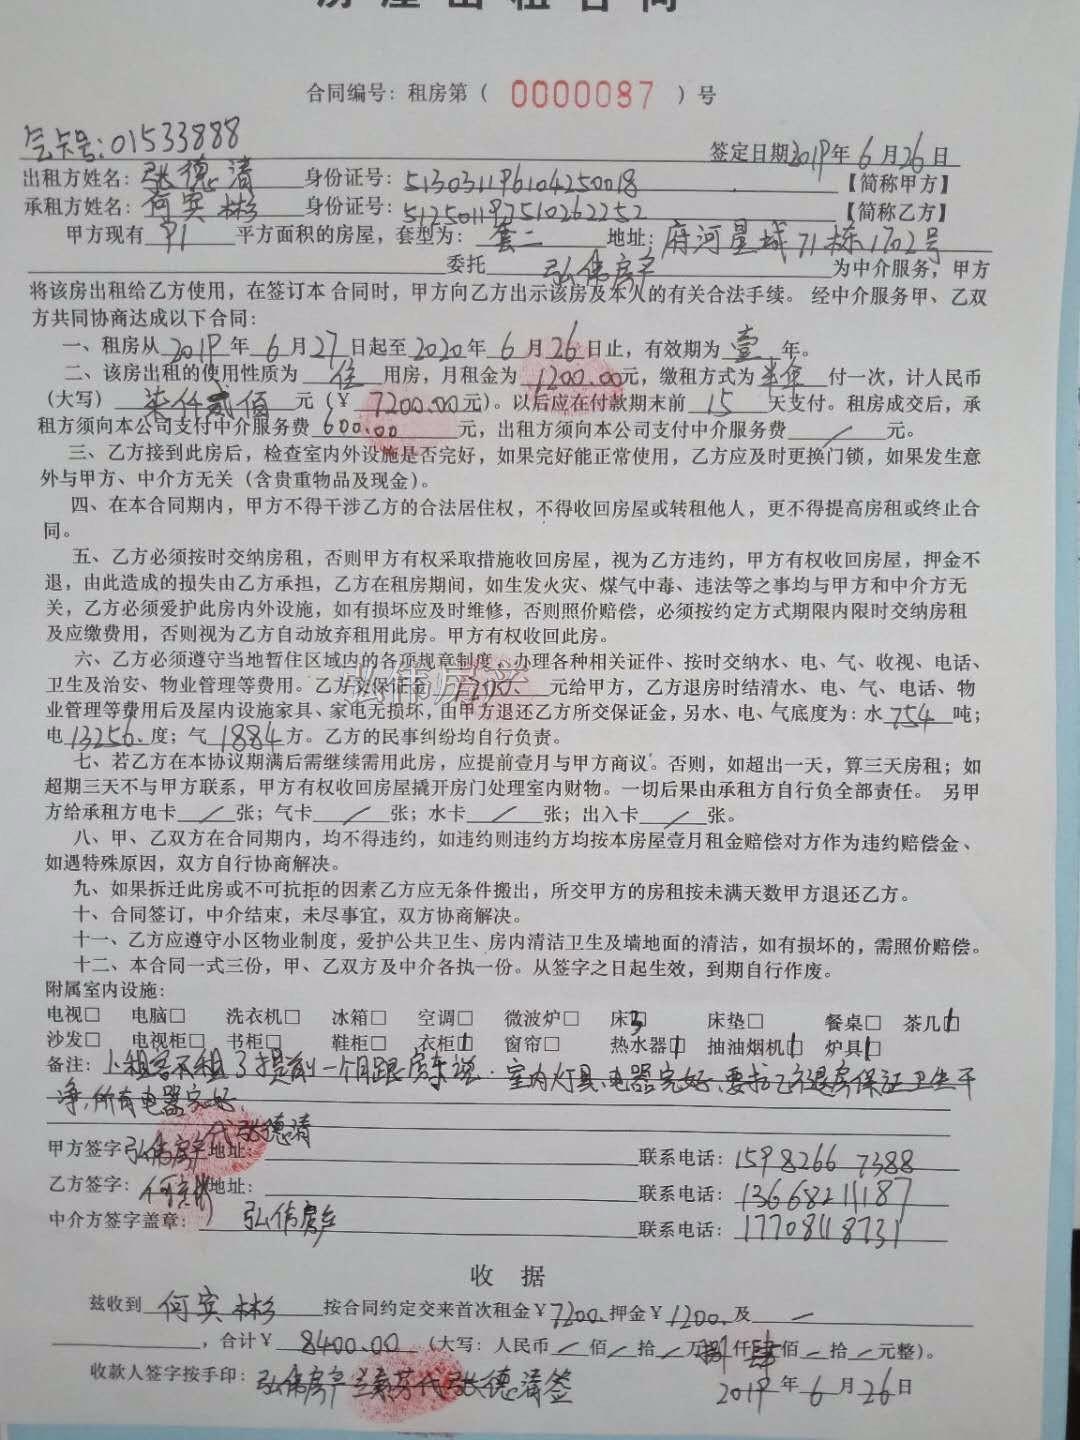 房屋出租合同
合同编号：租房第（ 0000087 ）号
气卡号：01533888
签定日期2019年6月26日
出租方姓名：张德清 身份证号：513031196104250018 【简称甲方】
承租方姓名：何宾彬 身份证号： 【简称乙方】
甲方现有 91 平方面积的房屋，套型为： 套二 地址：府河星城71栋1702号
委托 弘伟房产 为中介服务，甲方
将该房出租给乙方使用，在签订本 合同时，甲方向乙方出示该房及本人的有关合法手续。 经中介服务甲、乙双
方共同协商达成以下合同：
一、租房从 2019 年 6 月 27 日起至 2020 年 6 月 26 日止，有效期为 壹 年。
二、该房出租的使用性质为 住 用房，月租金为 1200.00 元，缴租方式为 半年 付一次，计人民币
（大写） 柒仟贰佰 元（￥ 7200.00 元）。以后应在付款期末前 15 天支付。租房成交后，承
租方须向本公司支付中介服务费 600.00 元，出租方须向本公司支付中介服务费 / 元。
三、乙方接到此房后，检查室内外设施是否完好，如果完好能正常使用，乙方应及时更换门锁，如果发生意
外与甲方、中介方无关（含贵重物品及现金）。
四、在本合同期内，甲方不得干涉乙方的合法居住权，不得收回房屋或转租他人，更不得提高房租或终止合
同。
五、乙方必须按时交纳房租，否则甲方有权采取措施收回房屋，视为乙方违约，甲方有权收回房屋，押金不
退，由此造成的损失由乙方承担，乙方在租房期间，如生发火灾、煤气中毒、违法等之事均与甲方和中介方无
关，乙方必须爱护此房内外设施，如有损坏应及时维修，否则照价赔偿，必须按约定方式期限内限时交纳房租
及应缴费用，否则视为乙方自动放弃租用此房。甲方有权收回此房。
六、乙方必须遵守当地暂住区域内的各项规章制度，办理各种相关证件、按时交纳水、电、气、收视、电话、
卫生及治安、物业管理等费用。乙方交保证金 1200. 元给甲方，乙方退房时结清水、电、气、电话、物
弘伟房产
业管理等费用后及屋内设施家具、家电无损坏，由甲方退还乙方所交保证金，另水、电、气底度为：水 754 吨；
电 13256. 度；气 1884 方。乙方的民事纠纷均自行负责。
七、若乙方在本协议期满后需继续需用此房，应提前壹月与甲方商议。否则，如超出一天，算三天房租；如
超期三天不与甲方联系，甲方有权收回房屋撬开房门处理室内财物。一切后果由承租方自行负全部责任。 另甲
方给承租方电卡 / 张；气卡 / 张；水卡 / 张；出入卡 / 张。
八、甲、乙双方在合同期内，均不得违约，如违约则违约方均按本房屋壹月租金赔偿对方作为违约赔偿金、
如遇特殊原因，双方自行协商解决。
九、如果拆迁此房或不可抗拒的因素乙方应无条件搬出，所交甲方的房租按未满天数甲方退还乙方。
十、合同签订，中介结束，未尽事宜，双方协商解决。
十一、乙方应遵守小区物业制度，爱护公共卫生、房内清洁卫生及墙地面的清洁，如有损坏的，需照价赔偿。
十二、本合同一式三份，甲、乙双方及中介各执一份。从签字之日起生效，到期自行作废。
附属室内设施：
电视□ 电脑□ 洗衣机□ 冰箱□ 空调□ 微波炉□ 床3 床垫□ 餐桌□ 茶几1
沙发□ 电视柜□ 书柜□ 鞋柜□ 衣柜1 窗帘□ 热水器1 抽油烟机1 炉具1
备注：小租客不租了提前一个月跟房东说．室内灯具、电器完好．退房保证卫生干
净，所有电器完好．
代张德清
甲方签字：弘伟房产 地址： 联系电话：15982667388
乙方签字：何宾彬 地址： 联系电话：13668211187
中介方签字盖章：弘伟房产 联系电话：17708118731
收 据
兹收到 何宾彬 按合同约定交来首次租金￥7200. 押金￥1200. 及 一
，合计￥ 8400.00 （大写：人民币 / 佰 / 拾 / 万 捌 仟 肆 佰 / 拾 / 元整）。
收款人签字按手印：弘伟房产 代张德清签
2019 年 6 月 26 日